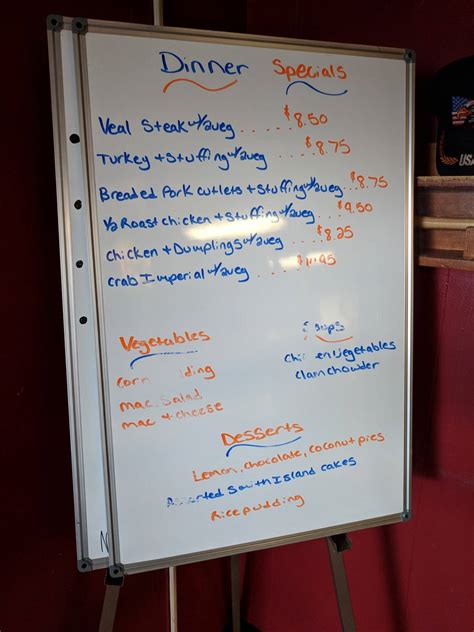 Dinner Specials
Veal Steak w/2veg ..... $8.50
Turkey + Stuffing w/2veg .... $8.75
Breaded Pork cutlets + Stuffing w/2veg ... $8.75
1/2 Roast chicken + Stuffing w/2veg .... $9.50
chicken + Dumplings w/2veg .... $8.25
Crab Imperial w/2veg ....
Vegetables
Corn
mac. Salad
mac + cheese
Soups
Vegetables
clam chowder
Desserts
Lemon, chocolate, coconut pies
Assorted South Island cakes
Rice pudding
N
USA